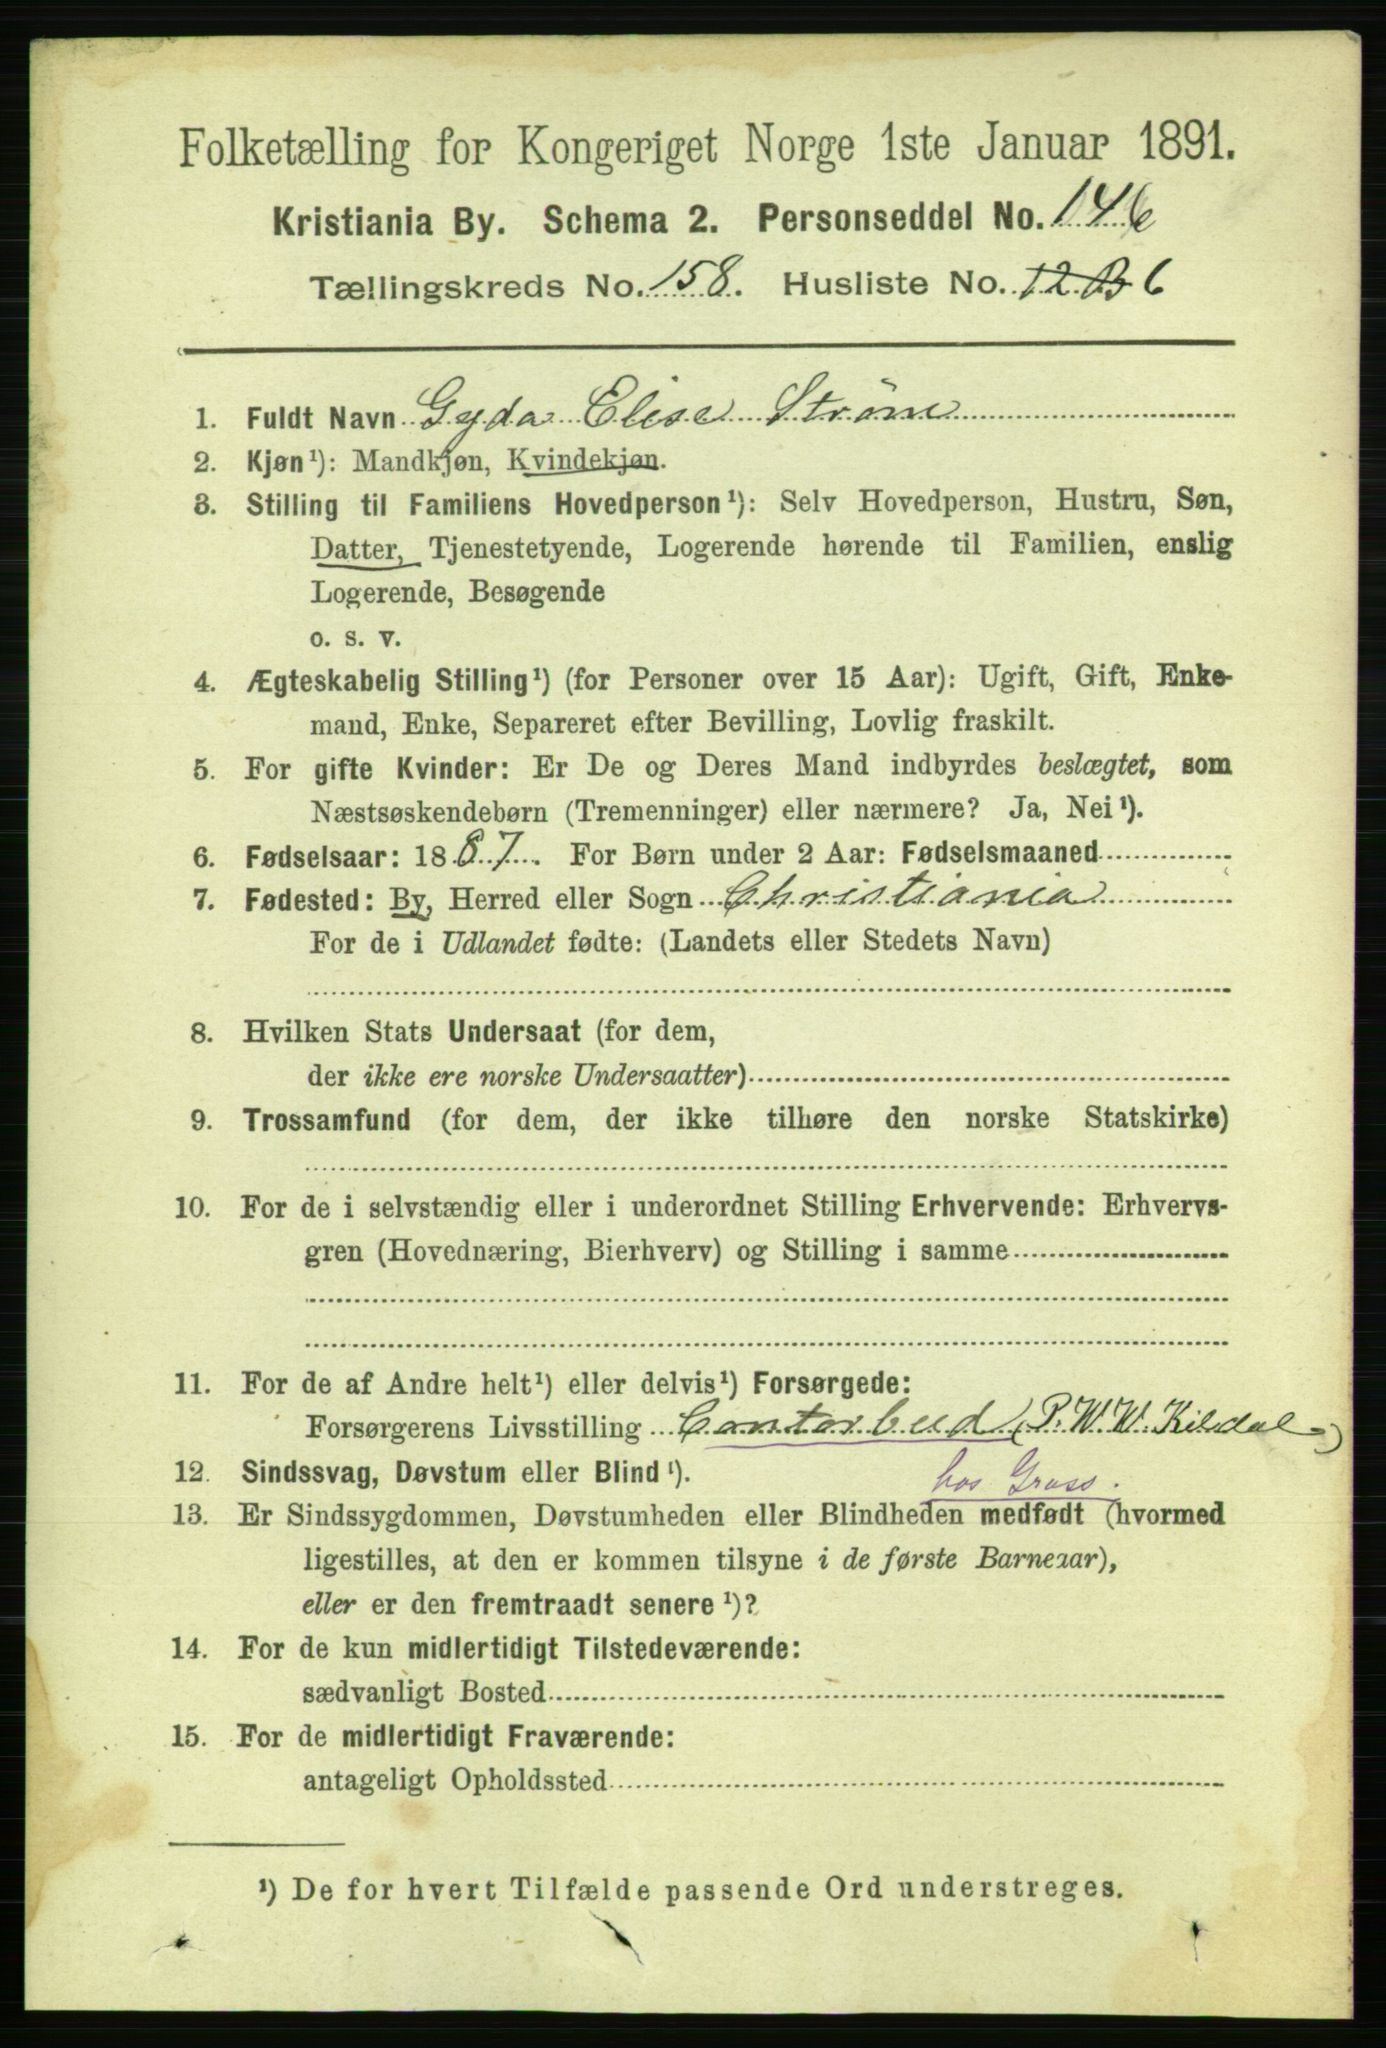 Folketælling for Kongeriget Norge 1ste Januar 1891.
Kristiania By. Schema 2. Personseddel No. 146
Tællingskreds No. 158. Husliste No. 12 B 6
1. Fuldt Navn Gyda Elise Ström
2. Kjøn¹): Mandkjøn, Kvindekjøn.
3. Stilling til Familiens Hovedperson¹): Selv Hovedperson, Hustru, Søn,
Datter, Tjenestetyende, Logerende hørende til Familien, enslig
Logerende, Besøgende
o. s. v.
4. Ægteskabelig Stilling¹) (for Personer over 15 Aar): Ugift, Gift, Enke-
mand, Enke, Separeret efter Bevilling, Lovlig fraskilt.
5. For gifte Kvinder: Er De og Deres Mand indbyrdes beslægtet, som
Næstsøskendebørn (Tremenninger) eller nærmere? Ja, Nei¹).
6. Fødselsaar: 1887. For Børn under 2 Aar: Fødselsmaaned
7. Fødested: By, Herred eller Sogn Christiania
For de i Udlandet fødte: (Landets eller Stedets Navn)
8. Hvilken Stats Undersaat (for dem,
der ikke ere norske Undersaatter)
9. Trossamfund (for dem, der ikke tilhøre den norske Statskirke)
10. For de i selvstændig eller i underordnet Stilling Erhvervende: Erhvervs-
gren (Hovednæring, Bierhverv) og Stilling i samme
11. For de af Andre helt¹) eller delvis¹) Forsørgede:
Forsørgerens Livsstilling Contorbud (P. W. W. Kildal)
12. Sindssvag, Døvstum eller Blind¹).
hos Gross.
13. Er Sindssygdommen, Døvstumheden eller Blindheden medfødt (hvormed
ligestilles, at den er kommen tilsyne i de første Barneaar),
eller er den fremtraadt senere¹)?
14. For de kun midlertidigt Tilstedeværende:
sædvanligt Bosted
15. For de midlertidigt Fraværende:
antageligt Opholdssted
¹) De for hvert Tilfælde passende Ord understreges.